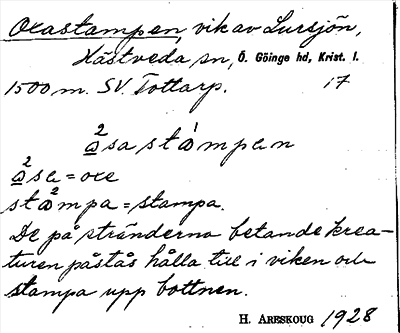 Oxastampen, vik av Lursjön,
Hästveda sn, Ö. Göinge hd, Krist. l.
1500 m. SV. Tottarp. 17
2 1
a͟sastampen
2
a͟sa = oxe
2
stampa = stampa.
De på stränderna betande krea-
turen påstås hålla till i viken och
stampa upp bottnen.
H. ARESKOUG 1928